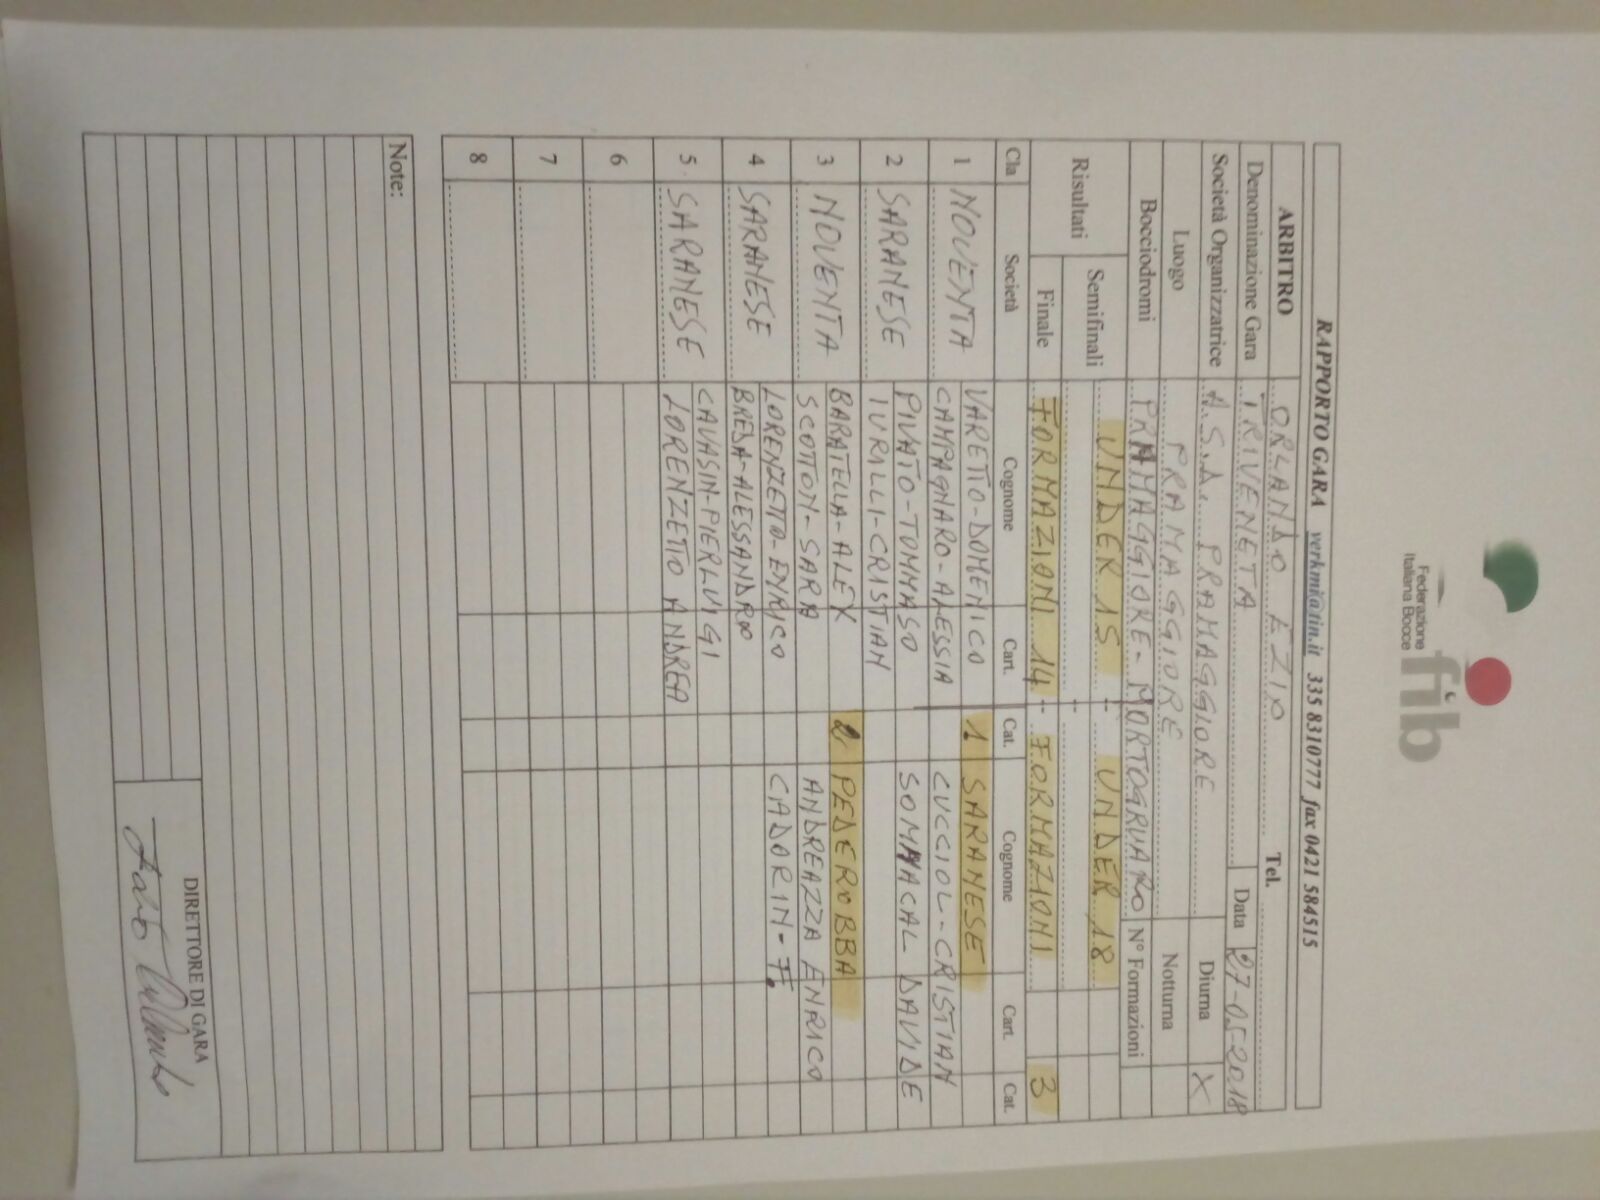 fib
Federazione
Italiana Bocce
RAPPORTO GARA verkmi@tin.it 335 8310777 fax 0421 584515
ARBITRO ORLANDO EZIO Tel.
Denominazione Gara TRIVENETA Data 27-05-2018
Società Organizzatrice A.S.D. PRAMAGGIORE Diurna X
Luogo PRAMAGGIORE Notturna
Bocciodromi PRAMAGGIORE - PORTOGRUARO N° Formazioni
Risultati Semifinali UNDER 15 -- UNDER 18
--
Finale FORMAZIONI 14 -- FORMAZIONI 3
Cla Società Cognome Cart. Cat. Cognome Cart. Cat.
1 NOVENTA VARETTO-DOMENICO 1. SARANESE
CAMPAGNARO-ALESSIA CUCCIOL-CRISTIAN
2 SARANESE PIVATO-TOMMASO SOMMACAL DAVIDE
IURILLI-CRISTIAN
3 NOVENTA BARATELLA-ALEX 2 PEDEROBBA
SCOTTON-SARA ANDREAZZA ENRICO
4 SARANESE LORENZETTO-ENRICO CADORIN-F.
BREDA-ALESSANDRO
5. SARANESE CAVASIN-PIERLUIGI
LORENZETTO ANDREA
6
7
8
Note:
DIRETTORE DI GARA